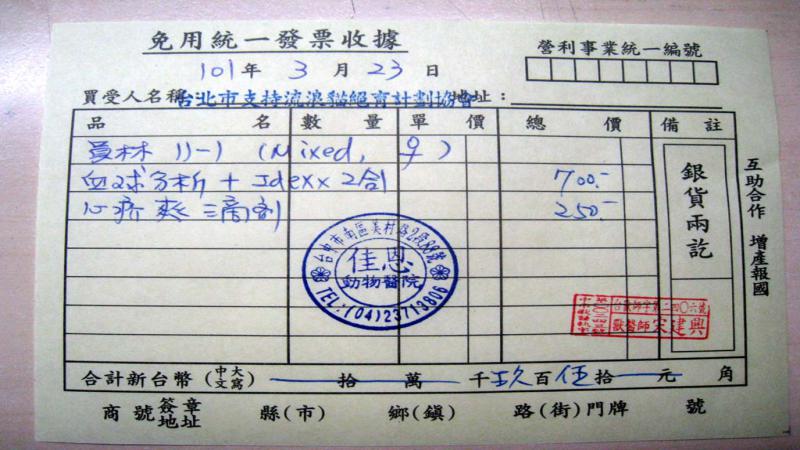 免用統一發票收據
營利事業統一編號
101年 3 月 23 日
買受人名稱:台北市支持流浪貓絕育計劃協會 地址:
品 名 數 量 單 價 總 價 備 註
員林 11-1 (Mixed, ♀)
血球分析 + Idexx 2合1 700.-
心疥爽 三滴劑 250.-
銀貨兩訖
互助合作 增產報國
台中市南區美村路2段88號
佳恩
動物醫院
TEL:(04)23713806
獸醫師 宋建興
合計新台幣 (中文大寫) 拾 萬 千玖百伍拾 元 角
商號簽章地址 縣(市) 鄉(鎮) 路(街)門牌 號